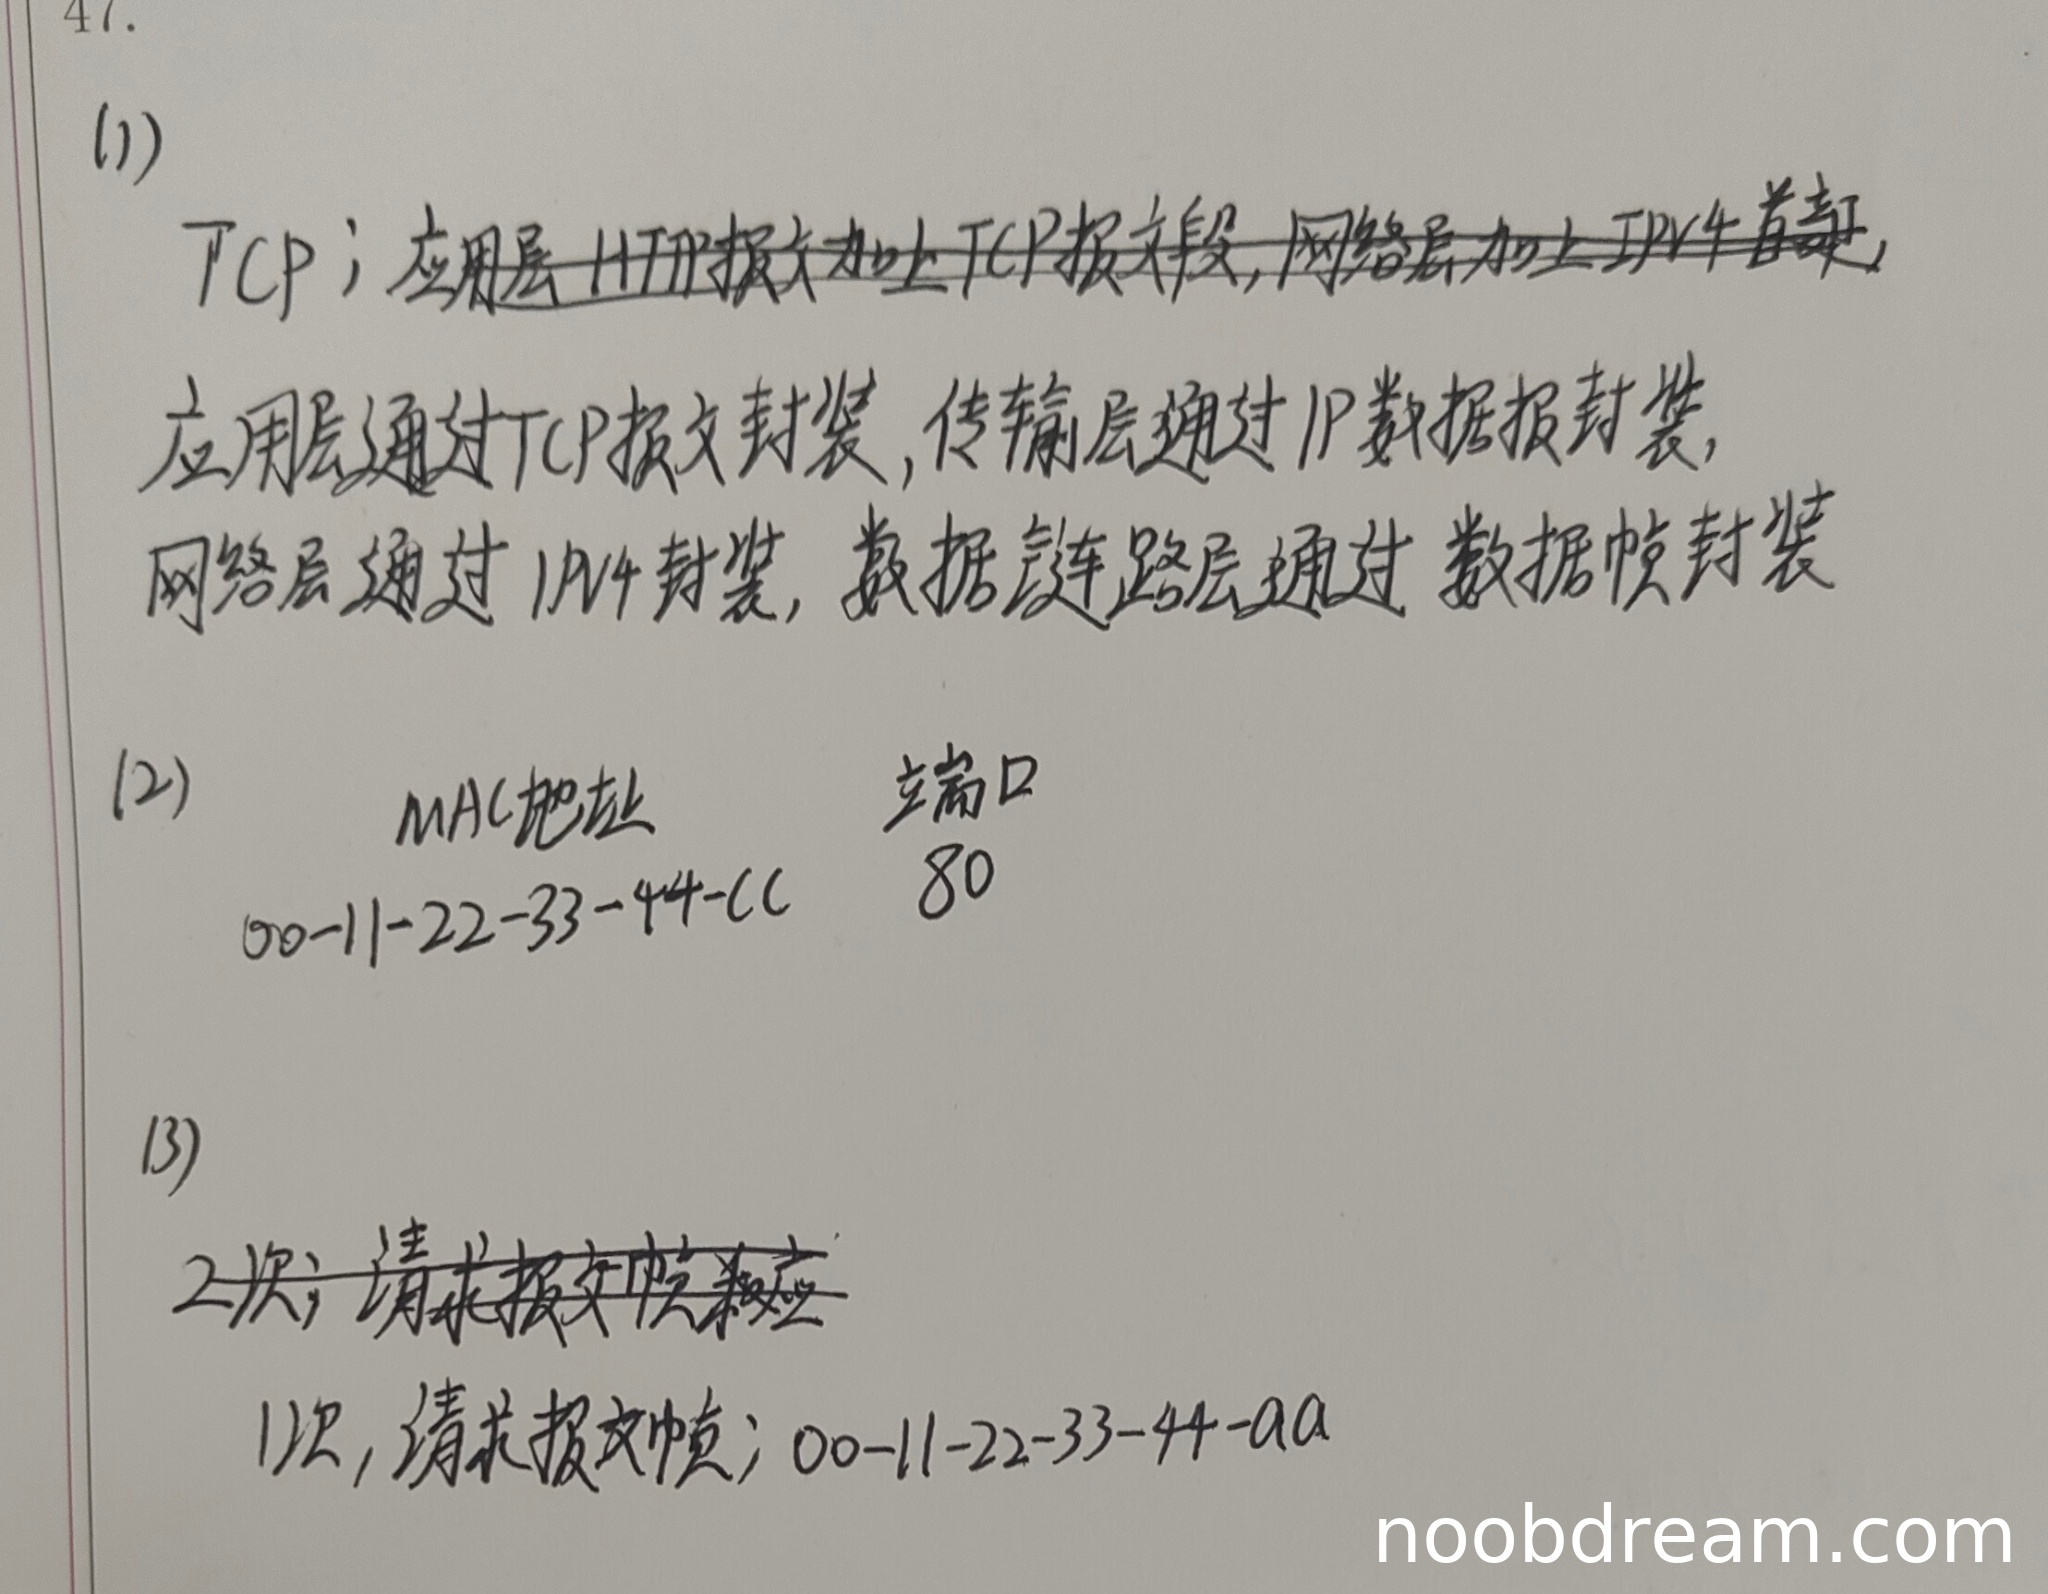 47.
(1)
TCP; 应用层 HTTP报文加上TCP报文段, 网络层加上IPV4首部,
应用层通过TCP报文封装, 传输层通过IP数据报封装,
网络层通过IPV4封装, 数据链路层通过 数据帧封装
(2) MAC地址 端口
00-11-22-33-44-CC 80
(3)
2次; 请求报文帧
1次, 请求报文帧; 00-11-22-33-44-aa
noobdream.com